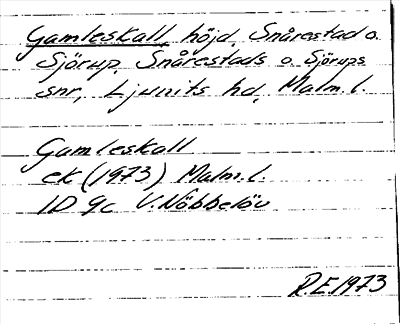 Gamleskall, höjd, Snårestad o.
Sjörup, Snårestads o. Sjörups
snr, Ljunits hd, Malm.l.
Gamleskall
ek (1973) Malm.l.
1D 9c V. Nöbbelöv
R.E. 1973